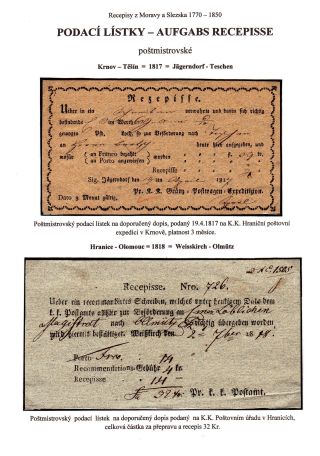 Recepisy z Moravy a Slezska 1770 – 1850
PODACÍ LÍSTKY – AUFGABS RECEPISSE
poštmistrovské
Krnov – Těšín = 1817 = Jägerndorf - Teschen
Rezepisse.
Ueber in ein
verwahrten und dem sich richtig
befundenen
gewogten Pfd. Loth, so zur Beförderung nach Teschen
an
heute hier aufgegeben, und
wofür
an Franco bezahlt
an Porto angewiesen
worden
Rezepisse
Sig. Jägerndorf
1817
Dato 3 Monat gültig.
Pr. K. K. Gränz-Postwagen-Expedition.
Poštmistrovský podací lístek na doporučený dopis, podaný 19.4.1817 na K.K. Hraniční poštovní
expedici v Krnově, platnost 3 měsíce.
Hranice - Olomouc = 1818 = Weisskirch - Olmütz
Recepisse. Nro. 726.
Ueber ein recommandirtes Schreiben, welches unter heutigem Dato dem
k. k. Postamte allhier zur Beförderung an Einen Löblichen
Magistrat nach Olmütz richtig übergeben worden
wird hiermit bestättiget. Weißkirch den 2 7ber 1818.
Porto Fro. 14
Recommendations-Gebühr 4 kr.
Recepisse 14
32 kr. Pr. k. k. Postamt.
Poštmistrovský podací lístek na doporučený dopis podaný na K.K. Poštovním úřadu v Hranicích,
celková částka za přepravu a recepis 32 Kr.